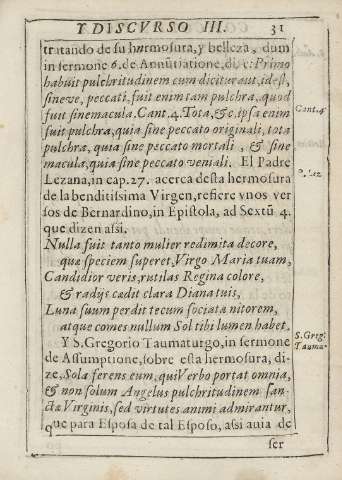 Y DISCVRSO III. 31
tratando de su hermosura, y belleza, dum
in sermone 6. de Annũtiatione, dize: Primo
habuit pulchritudinem cum dicitur aut, idest,
sineve, peccati, fuit enim tam pulchra, quod
fuit sine macula. Cant. 4. Tota, &c. ipsa enim
Cant. 4
fuit pulchra, quia sine peccato originali, tota
pulchra, quia sine peccato mortali, & sine
macula, quia sine peccato veniali. El Padre
Lezana, in cap. 27. acerca desta hermosura
de la benditissima Virgen, refiere vnos ver
sos de Bernardino, in Epistola, ad Sextũ 4.
que dizen assi.
Nulla fuit tanto mulier redimita decore,
quæ speciem superet, Virgo Maria tuam,
Candidior veris, rutilas Regina colore,
& radijs cædit clara Diana tuis,
Luna suum perdit tecum sociata nitorem,
atque comes nullum Sol tibi lumen habet.
Y S. Gregorio Taumaturgo, in sermone
S. Greg.
Tauma-
de Assumptione, sobre esta hermosura, di-
ze. Sola ferens eum, qui Verbo portat omnia,
& non solum Angelus pulchritudinem san-
ctæ Virginis, sed virtutes animi admirantur,
que para Esposa de tal Esposo, assi auia de
ser